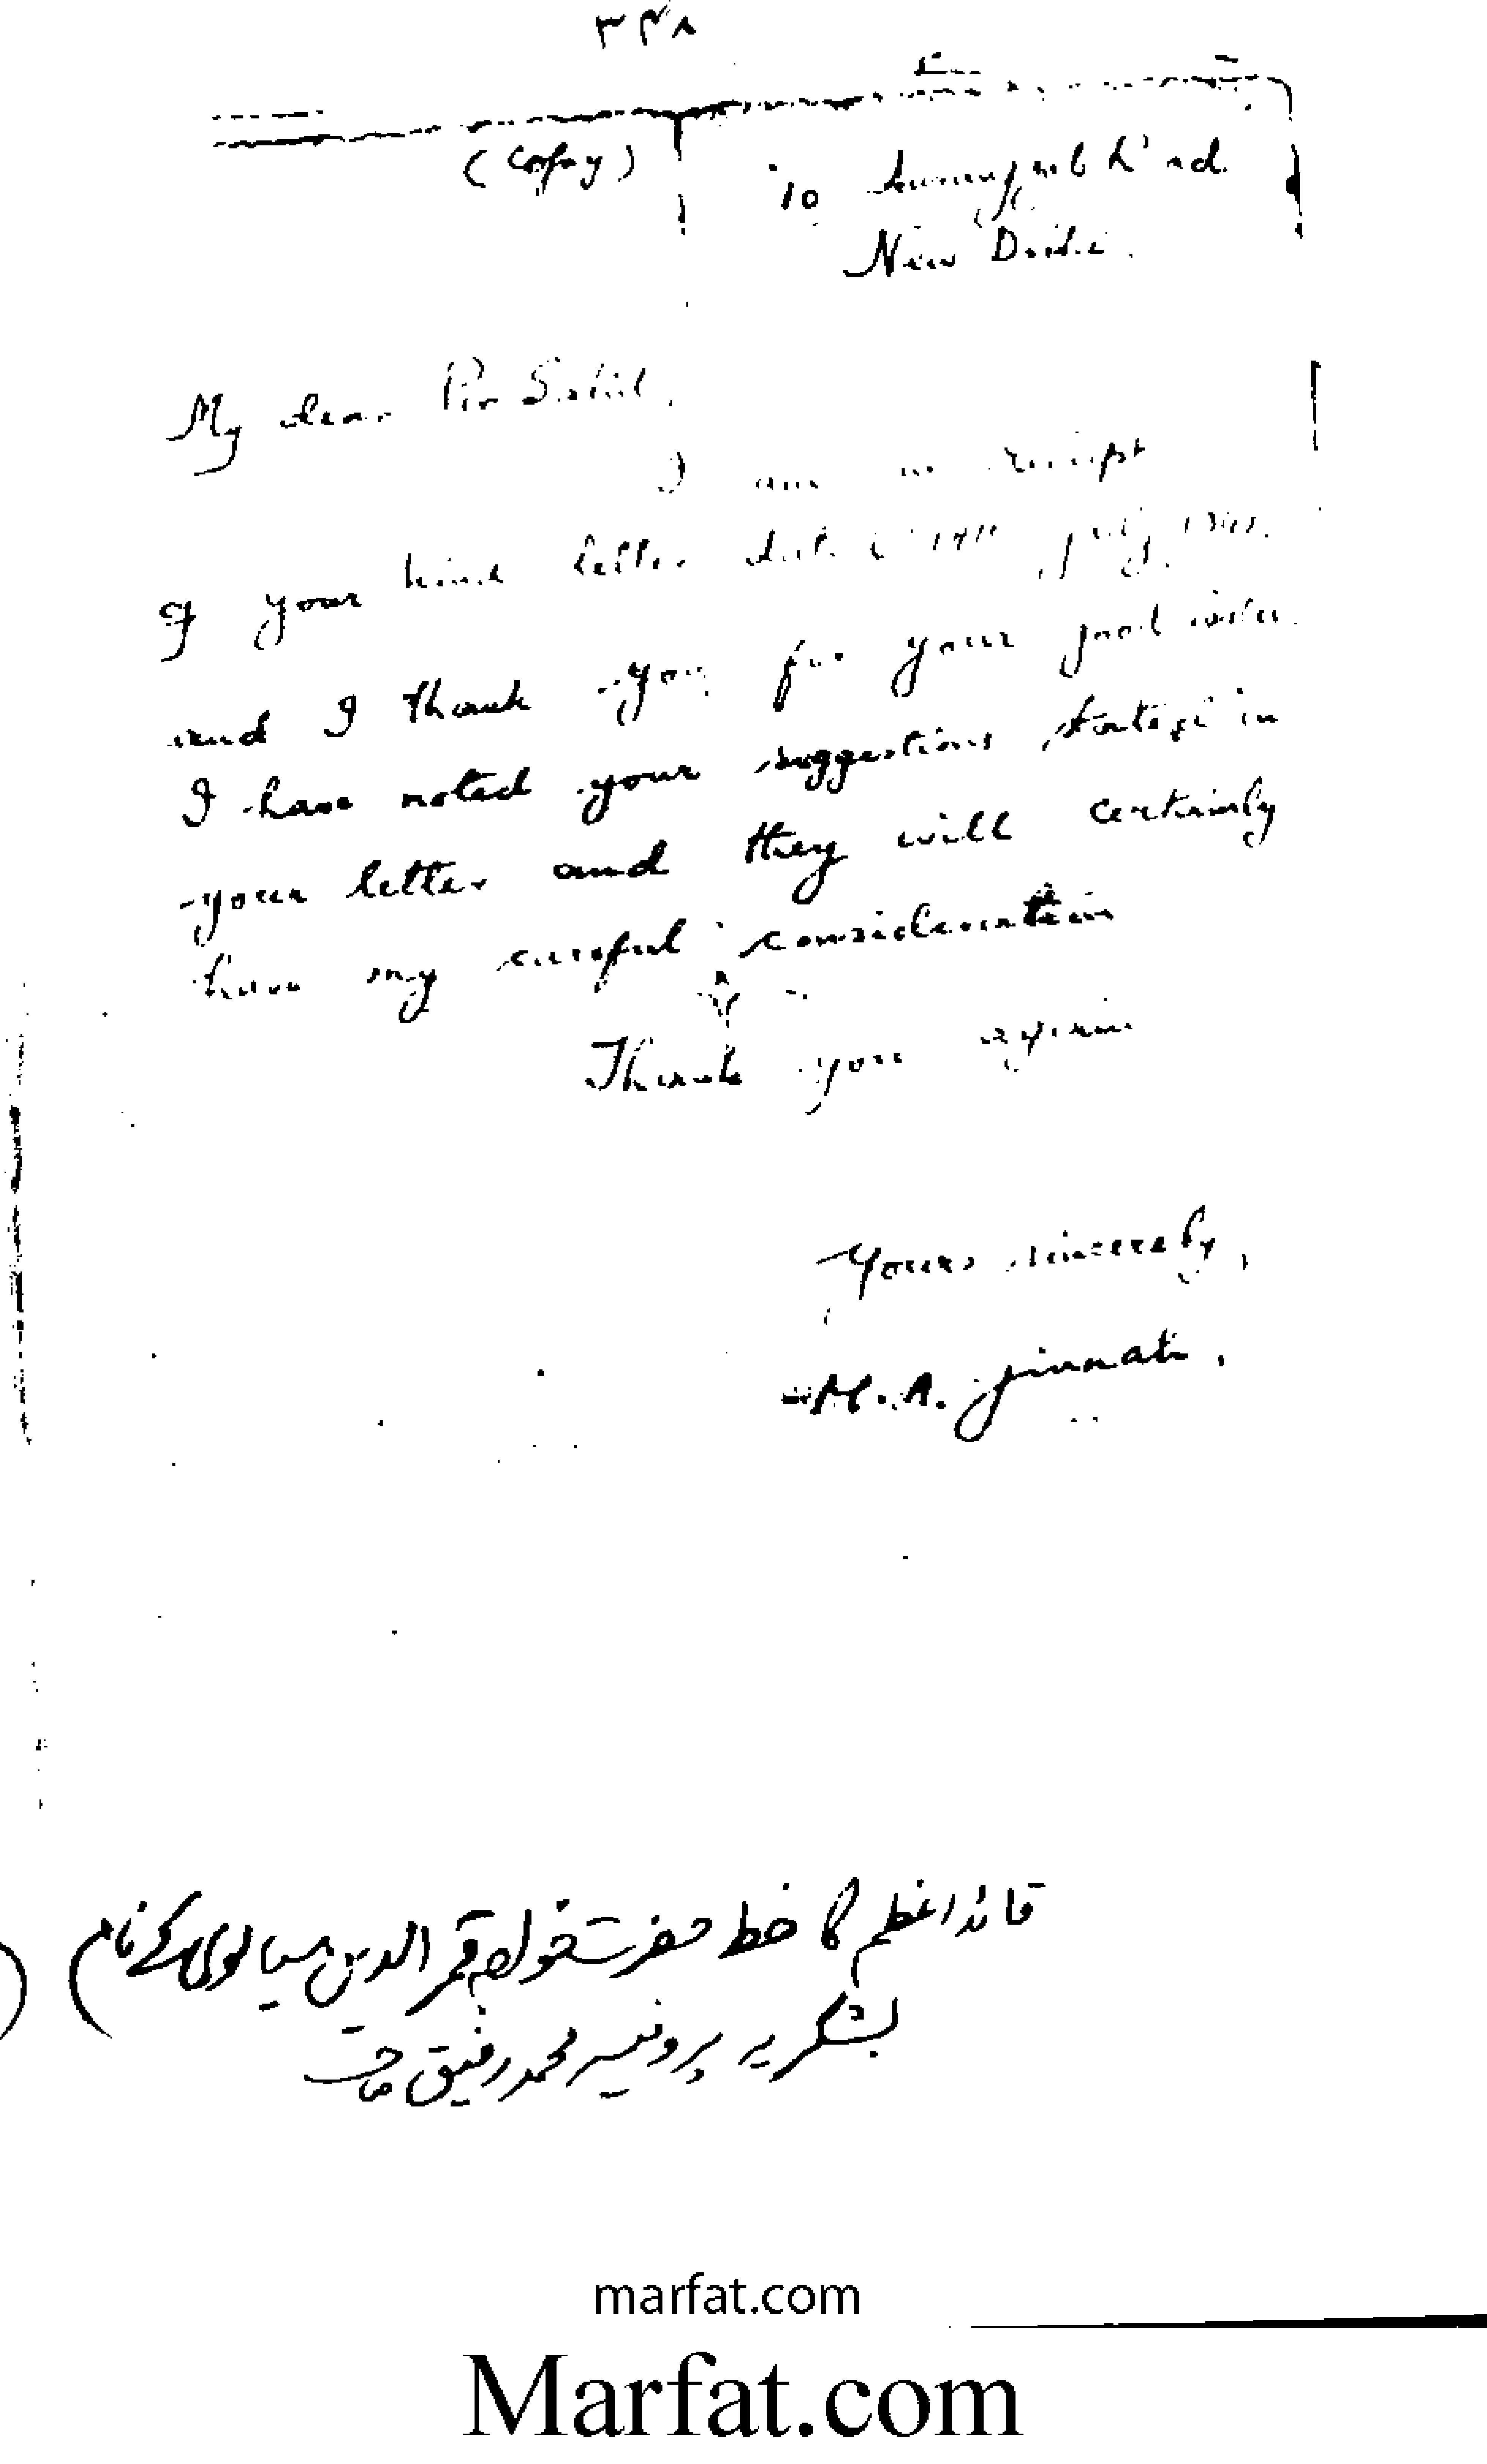 ۳۴۸
(Copy)
10 Aurangzeb Road
New Delhi.
My dear Pir Sahib,
I am in receipt
of your kind letter dated July
and I thank you for your good wishes.
I have noted your suggestions stated in
your letter and they will certainly
have my careful consideration
Thank you again
Yours sincerely,
M. A. Jinnah.
قائد اعظم کا خط حضرت خواجہ قمر الدین سیالوی کے نام)
بشکریہ پروفیسر محمد رفیق
marfat.com
Marfat.com